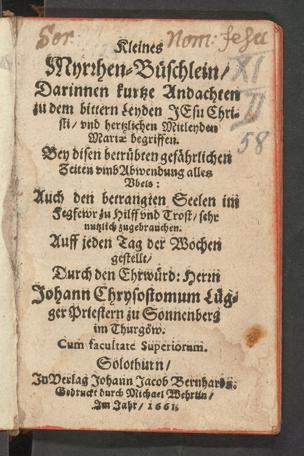 Sor. Nom: Jesu
XI
D
58
Kleines
Myrrhen-Büschlein/
Darinnen kurtze Andachten
zu dem bittern Leyden JEsu Chri-
sti/ vnd hertzlichen Mitleyden
Mariæ begriffen.
Bey disen betrübten gefährlichen
Zeiten vmb Abwendung alles
Vbels:
Auch den betrangten Seelen im
Fegfewr zu Hilff vnd Trost/ sehr
nutzlich zugebrauchen.
Auff jeden Tag der Wochen
gestellt/
Durch den Ehrwürd: Herrn
Johann Chrysostomum Lüg-
ger Priestern zu Sonnenberg
im Thurgöw.
Cum facultate Superiorum.
Solothurn/
In Verlag Johann Jacob Bernhards.
Gedruckt durch Michael Wehrlin/
Im Jahr/ 1661.